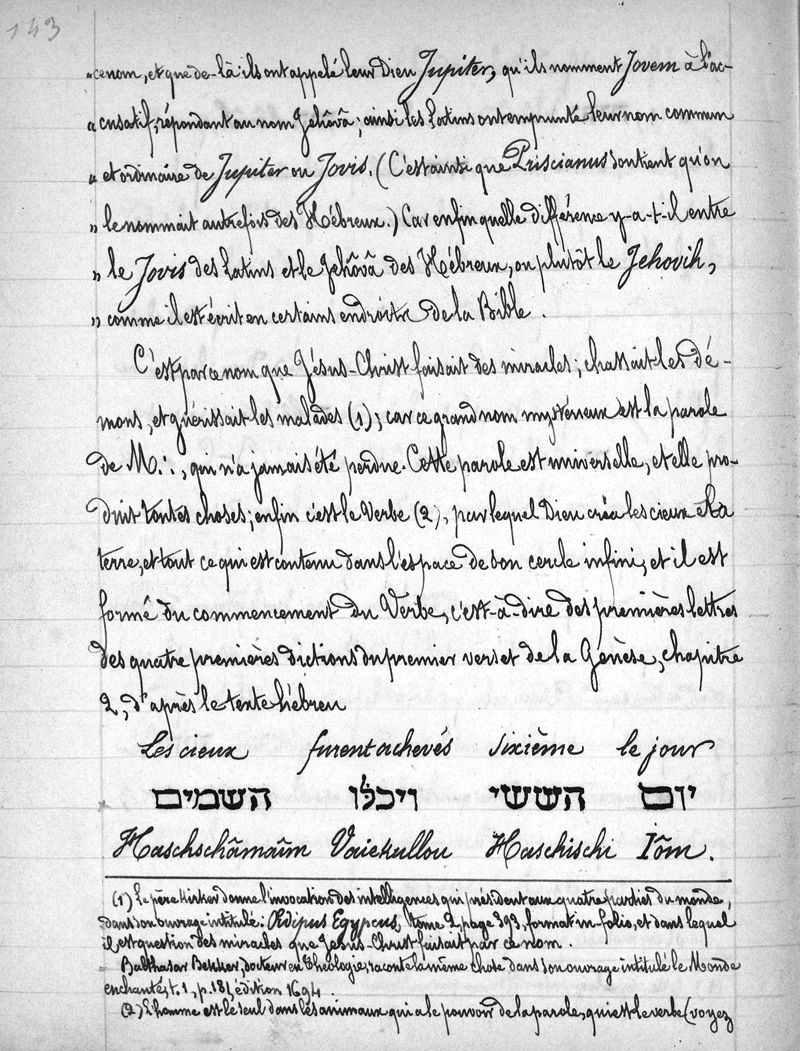 143
« ce nom, et que de-là ils ont appelé leur Dieu Jupiter, qu'ils nomment Jovem à l'ac-
« cusatif, répondant au nom Jehôvâ; ainsi les Latins ont emprunté leur nom commun
« et ordinaire de Jupiter ou Jovis. (C'est ainsi que Priscianus soutient qu'on
» le nommait autrefois des Hébreux.) Car enfin quelle différence y-a-t-il entre
» le Jovis des Latins et le Jehôvâ des Hébreux, ou plûtôt le Jehovih,
» comme il est écrit en certains endroits de la Bible.
C'est par ce nom que Jésus-Christ faisait des miracles; chassait les dé-
mons, et guérissait les malades (1); car ce grand nom mystérieux est la parole
de M∴, qui n'a jamais été perdue. Cette parole est universelle, et elle pro-
duit toutes choses; enfin c'est le Verbe (2), par lequel Dieu créa les cieux et la
terre, et tout ce qui est contenu dans l'espace de son cercle infini, et il est
formé du commencement du Verbe, c'est-à-dire des premières lettres
des quatre premières dictions du premier verset de la Genèse, chapitre
2, d'après le texte hébreu
Les cieux furent achevés sixième le jour
יום הששי ויכלו השמים
Haschschâmaîm Vaiekullou Haschischi Iôm.
(1) Le père Kirker donne l'invocation des intelligences qui président aux quatre parties du monde,
dans son ouvrage intitulé: Œdipus Egypcus, tome 2, page 393, format in-folio, et dans lequel
il est question des miracles que Jesus-Christ faisait par ce nom.
Balthasar Bekker, docteur en Théologie, raconte la même chose dans son ouvrage intitulé le Monde
enchanté, t. 1, p. 181, édition 1694.
(2) L'homme est le seul dans les animaux qui a le pouvoir de la parole, qui est le verbe (voyez